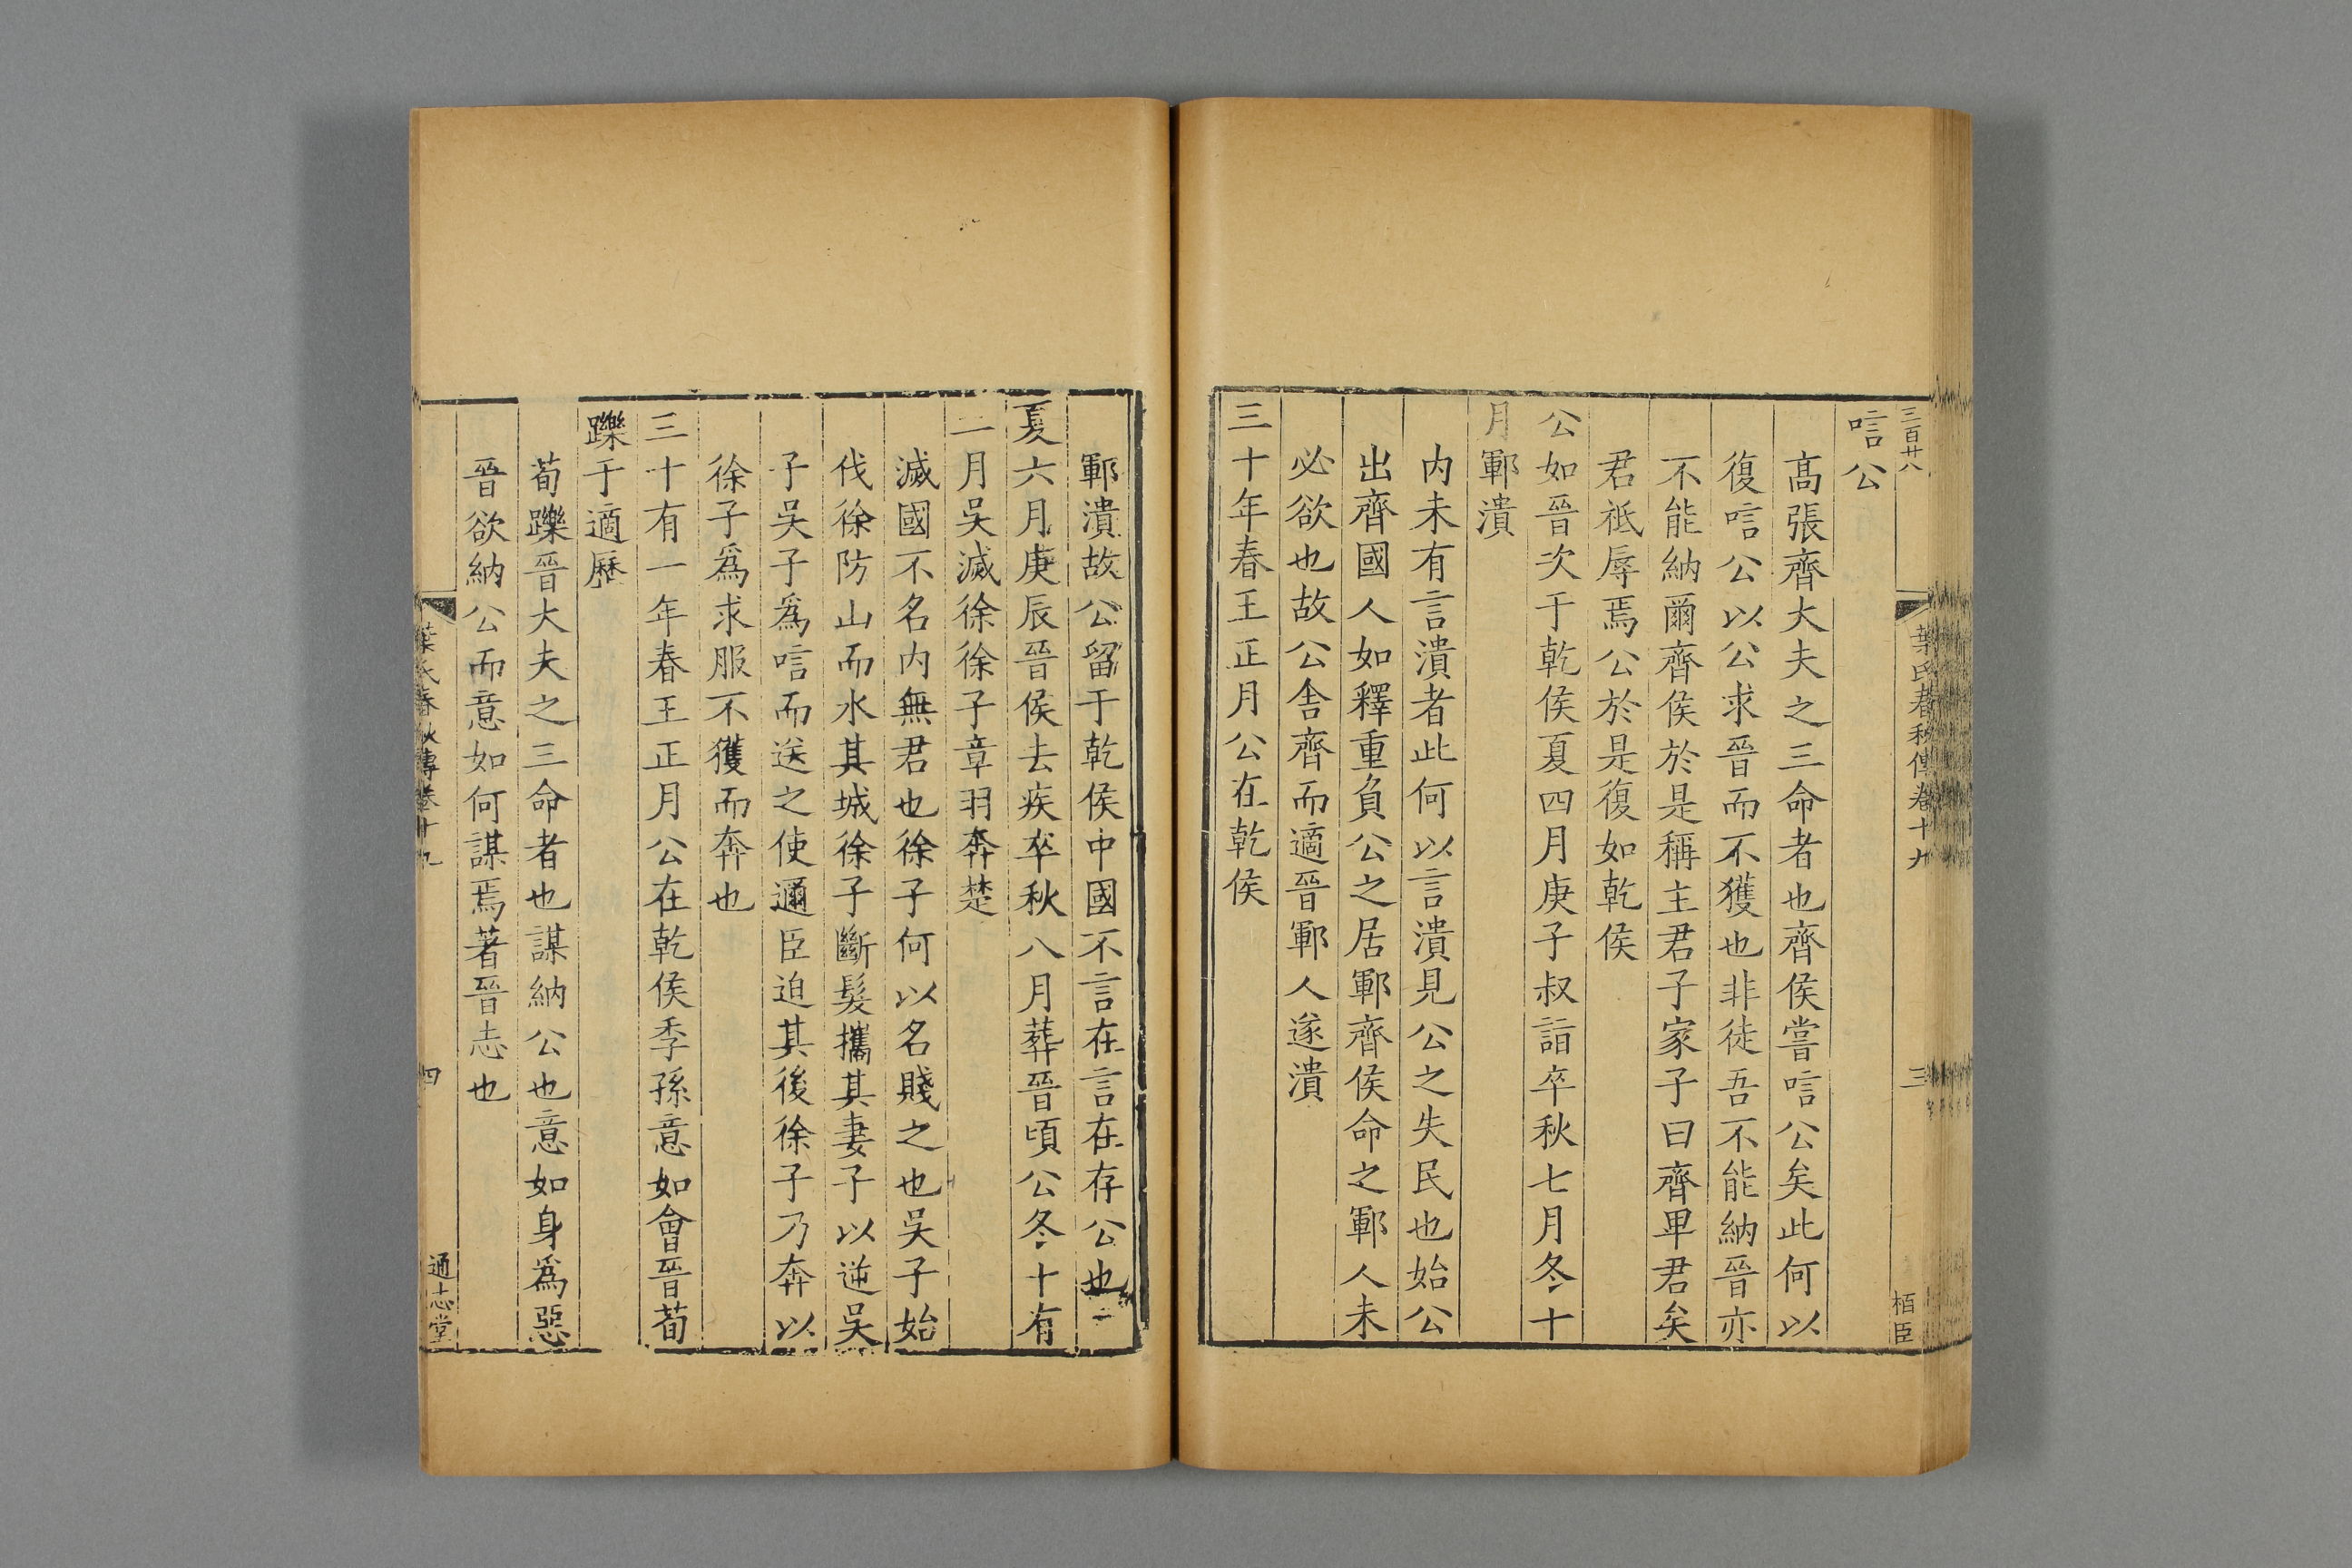 三百廿八
葉氏春秋傳卷十九
三
栢臣
唁公
髙張齊大夫之三命者也齊侯嘗唁公矣此何以
復唁公以公求晉而不獲也非徒吾不能納晉亦
不能納爾齊侯於是稱主君子家子曰齊畢君矣
君祗辱焉公於是復如乾侯
公如晉次于乾侯夏四月庚子叔詣卒秋七月冬十
月鄆潰
内未有言潰者此何以言潰見公之失民也始公
出齊國人如釋重負公之居鄆齊侯命之鄆人未
必欲也故公舎齊而適晉鄆人遂潰
三十年春王正月公在乾侯
鄆潰故公留于乾侯中國不言在言在存公也
夏六月庚辰晉侯去疾卒秋八月葬晉頃公冬十有
二月吳滅徐徐子章羽奔楚
滅國不名内無君也徐子何以名賤之也吳子始
伐徐防山而水其城徐子斷髮攜其妻子以逆吳
子吳子爲唁而送之使邇臣迫其後徐子乃奔以
徐子爲求服不獲而奔也
三十有一年春王正月公在乾侯季孫意如會晉荀
躒于適歷
荀躒晉大夫之三命者也謀納公也意如身爲惡
晉欲納公而意如何謀焉著晉志也
葉氏春秋傳卷十九
四
通志堂